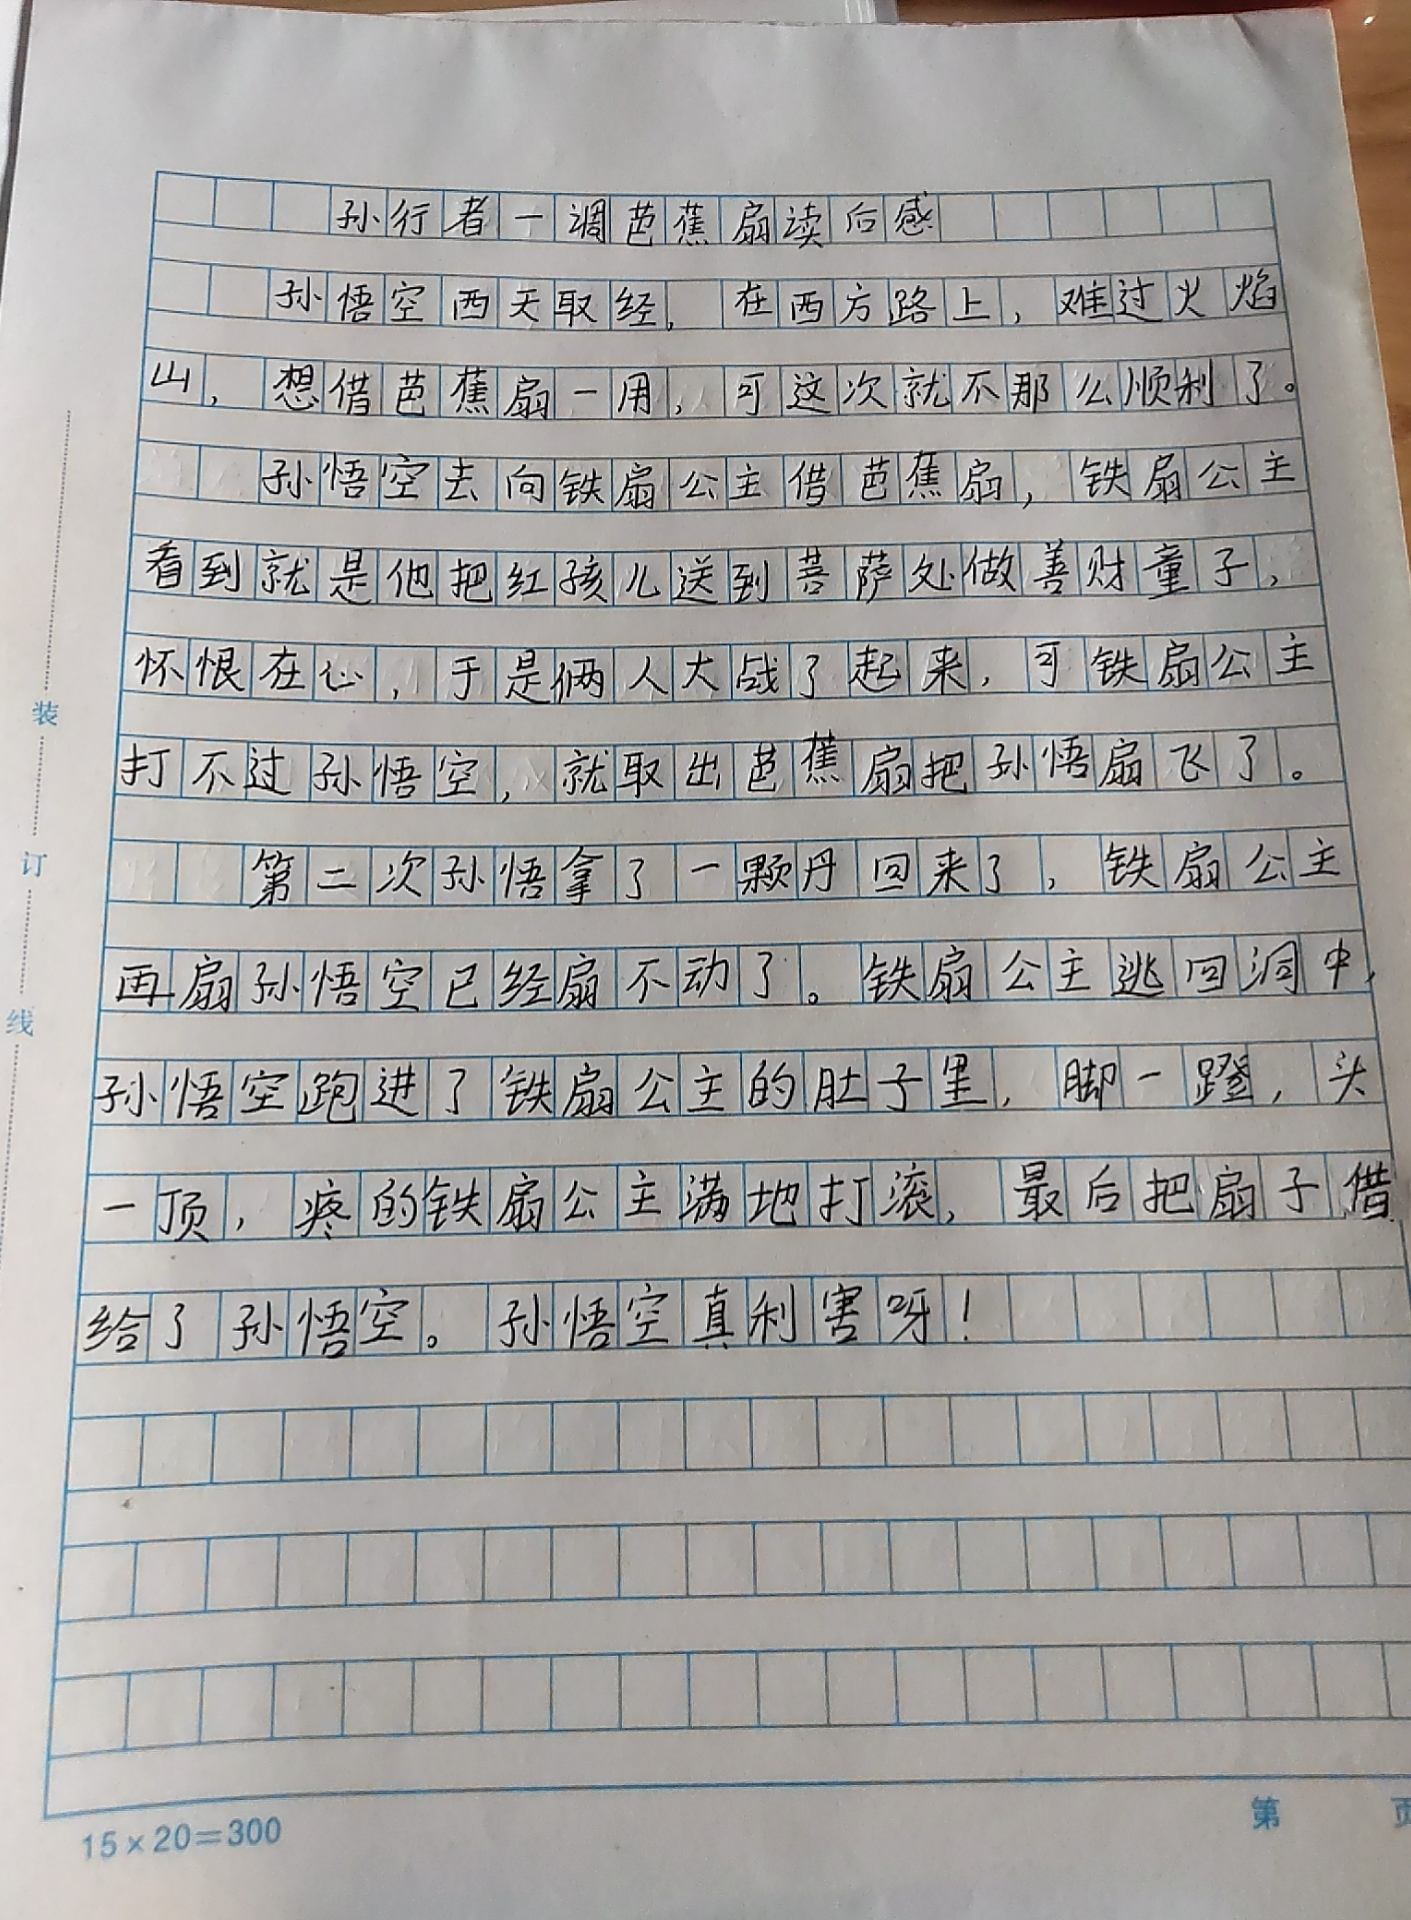 孙行者一调芭蕉扇读后感
孙悟空西天取经，在西方路上，难过火焰
山，想借芭蕉扇一用，可这次就不那么顺利了。
孙悟空去向铁扇公主借芭蕉扇，铁扇公主
看到就是他把红孩儿送到菩萨处做善财童子，
怀恨在心，于是俩人大战了起来，可铁扇公主
打不过孙悟空，就取出芭蕉扇把孙悟扇飞了。
第二次孙悟拿了一颗丹回来了，铁扇公主
再扇孙悟空已经扇不动了。铁扇公主逃回洞中，
孙悟空跑进了铁扇公主的肚子里，脚一蹬，头
一顶，疼的铁扇公主满地打滚，最后把扇子借
给了孙悟空。孙悟空真利害呀！
装
订
线
15×20=300
第 页